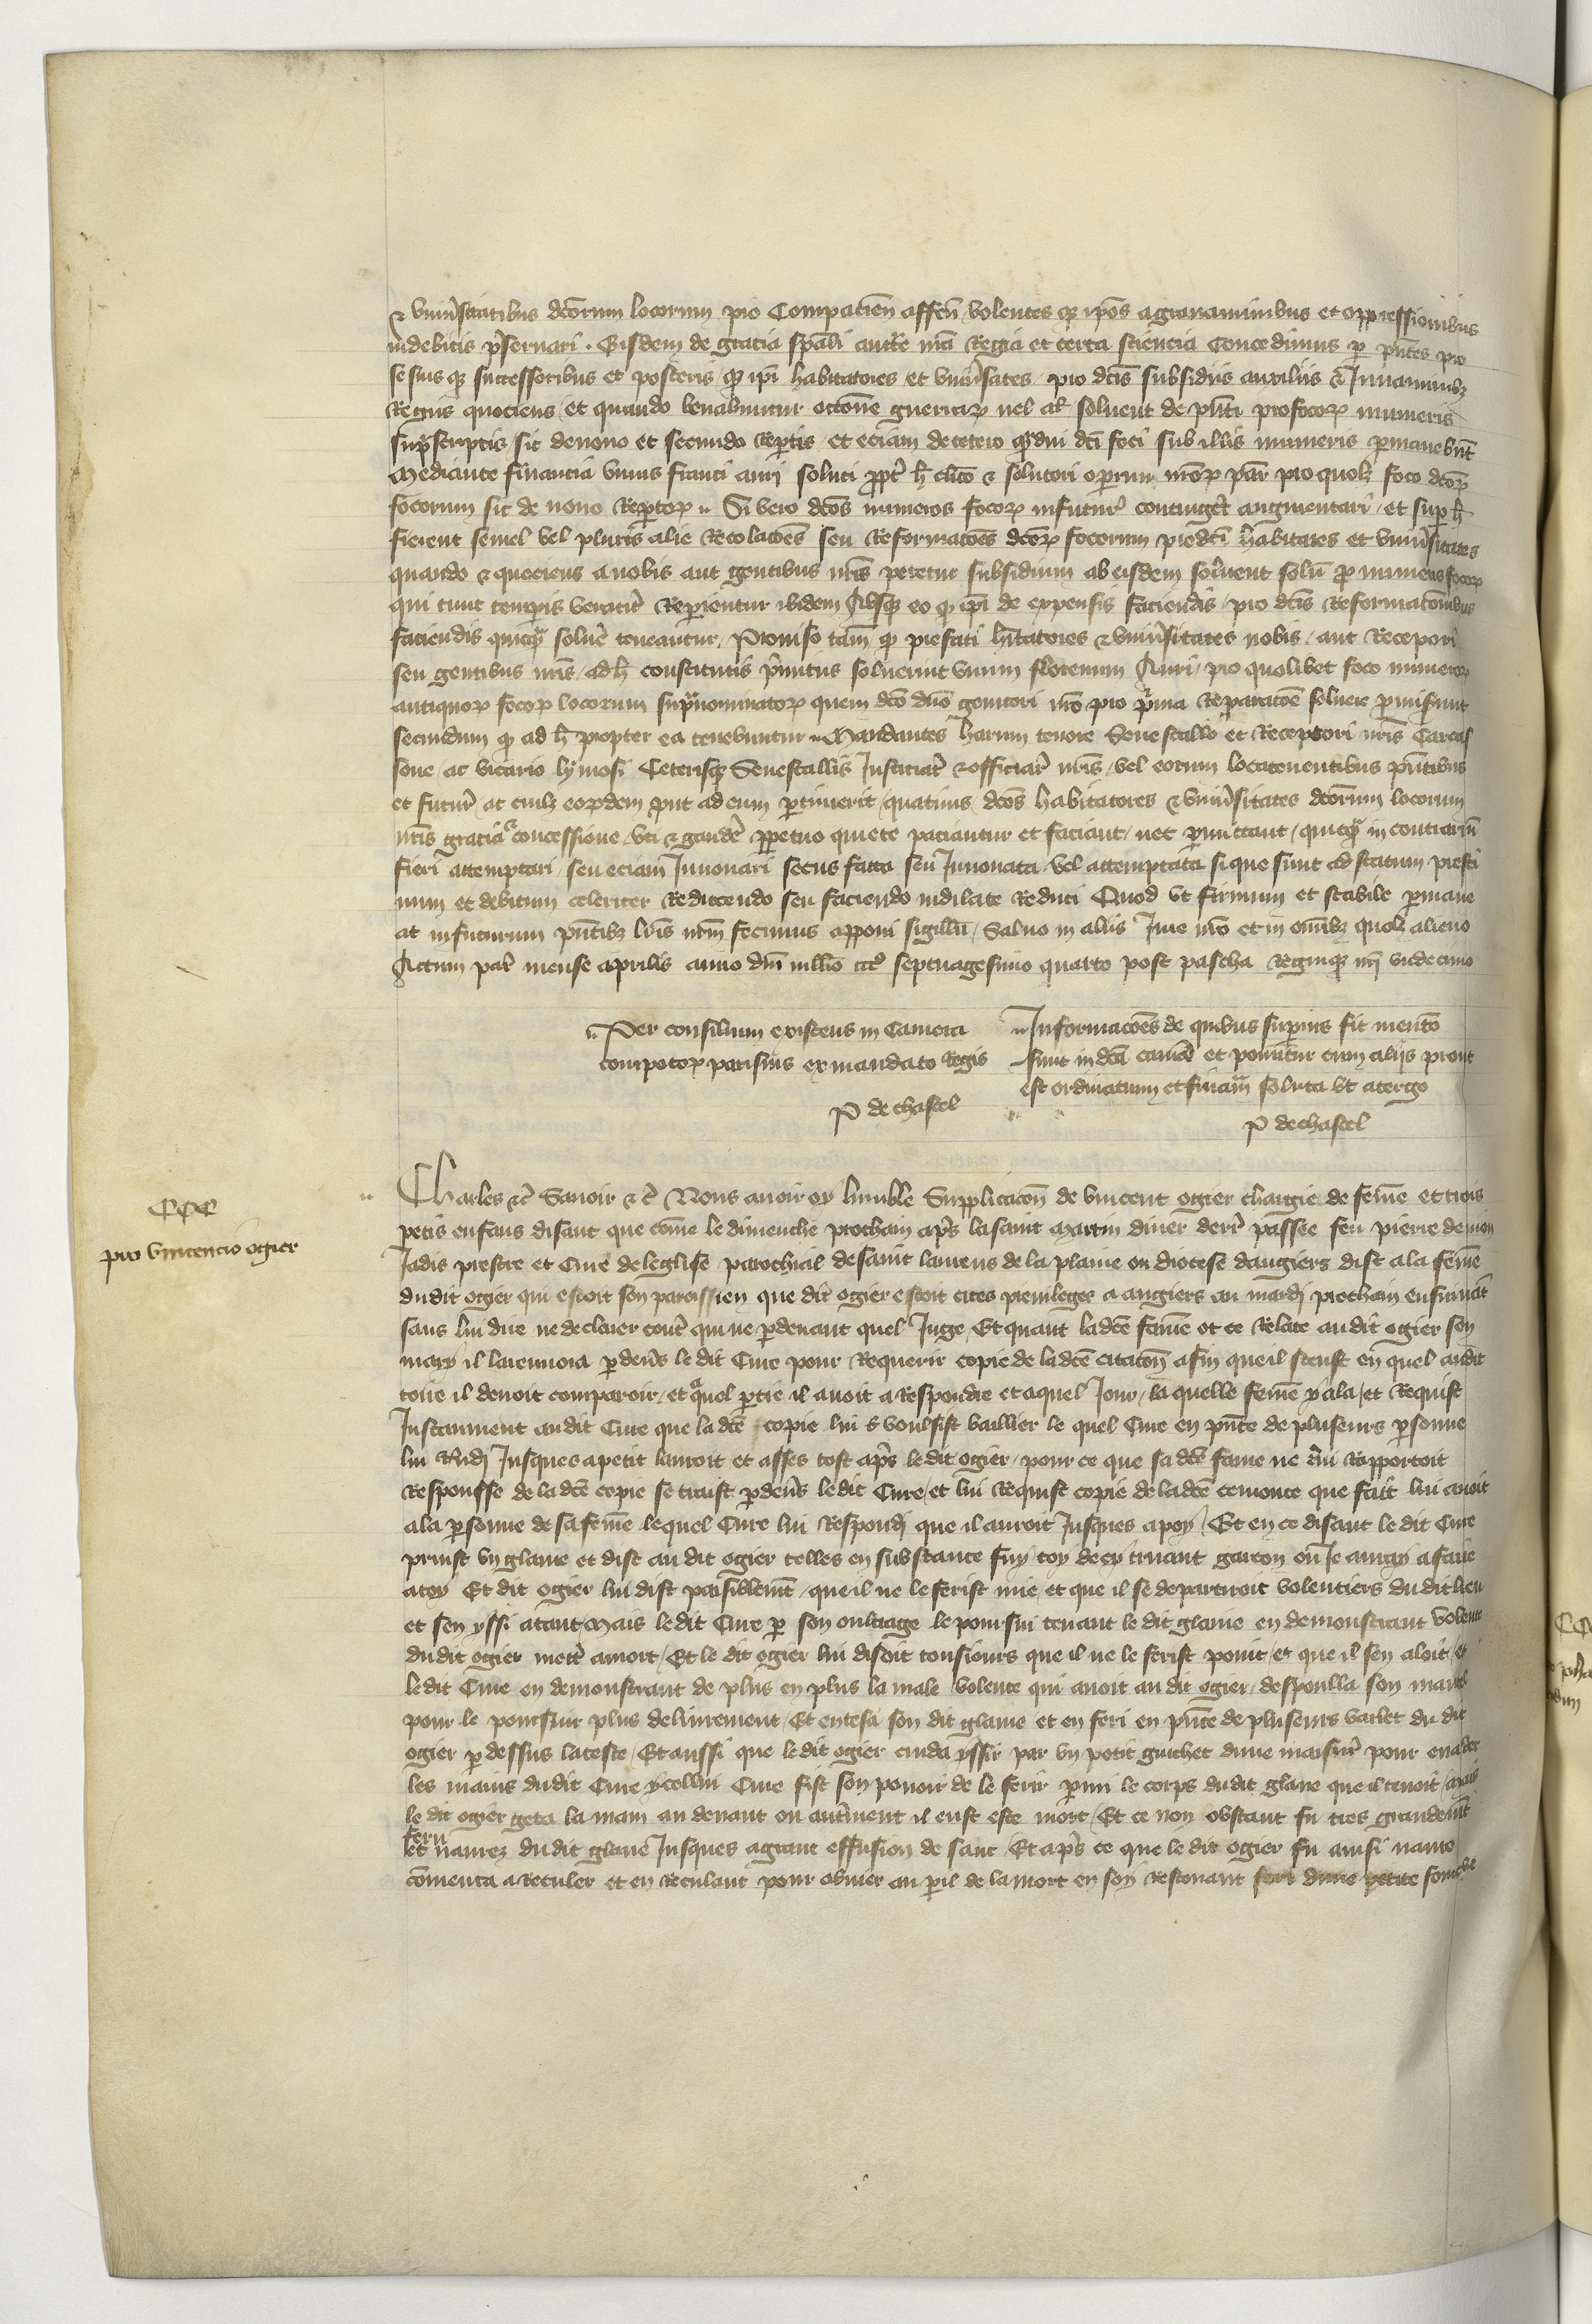 & univsitatibus dcorum locorum pio Compacien affen volentes qz ipos agravaminibus et oppressionibus
indebitis pservari. Eisdem de gracia spali aucte nra Regia et certa sciencia Concedimus p pntes pro
se suis qz successoribus et posteris qz ipi habitatores et univsates pro dcis subsidiis auxiliis & Juvaminibz
Regiis quociens et quando levabuntur occone guerrarz vel al solvent de pnti pro focorz numeris
supscriptis sic de novo et secundo Reptis et eciam decetero qzdiu dci foci sub illis numeris pmanebnt
Mediante financia unius franci auri soluti ppt h clico & solutori operum nrorz par pro quolz foco dcorz
focorum sic de novo Reptorz Si vero dcos numeros focorz infuturu contingt augmentari et sup h
fierent semel vel pluris alie Recolacoes seu Reformacoes dcorz focorum predci habitates et univsitates
quando & quociens a nobis aut gentibus nris petetur subsidium ab eisdem solvent solu p numeris focorz
qui tunc tempis veracit Repientur ibidem Absqz eo qz ipi de expensis faciendis pro dcis Reformaconibus
faciendis quicqz solve teneantur Proviso tam qz prefati hitatores & univsitates nobis aut Recepori
seu gentibus nris ad h constitutis pmitus solverint unum florenum Auri pro quolibet foco numerorz
antiquorz focorz locorum supnominatorz quem dco dno genitori nro pro pma Reparacoe solvere pmiserunt
secundum qz ad h propter ea tenebuntur Mandantes harum tenore Senescallo et Receptori nris Carcas
sone ac vicario lymosi Ceterisqz Senescallis Justiciar & officiar nris vel eorum locatenentibus pntibus
et futur ac cuilz eorzdem put ad eum ptinuerit quatinus dcos habitatores & univsitates dcorum locorum
nris gracia & concessione uti & gaudere ppetuo quiete paciantur et faciant nec pmittant quicqz in contrariu
fieri attemptari seu eciam Innovari secus facta seu Innovata vel attemptata si que sunt ad statum pristi
num et debitum celeriter Reducendo seu faciendo indilate Reduci Quod ut firmum et stabile pmane
at infuturum pntibz lris nrm fecimus apponi sigillu Salvo in aliis Jure nro et in omibz quolz alieno
Actum par mense aprilis anno dni millio ccc septuagesimo quarto post pascha Regniqz nri undecimo
Per consilium existens in Camera
compotorz parisius ex mandato Regis
P de chastel
Informacoes de quibus supius fit mencio
sunt in dca cama et ponuntur cum aliis prout
est ordinatum et financia soluta ut a tergo
P de chastel
CCC
pro Vincencio ogier
Charles &c Savoir &c Nous avoir oy humble Supplicacon de vincent ogier chargie de feme et trois
petis enfans disant que come le dimenche prochain aps la saint Martin diver derr passee feu pierre de
Jadis prestre et Cure de leglise parochial de saint laurens de la plaine ou diocese dangiers dist a la feme
dudit ogier qui estoit son paroissien que dit ogier estoit cites privileges a angiers au mardj prochain ensuivant
sans lui dire ne declairer contre qui ne pdevant quel Juge Et quant ladce fame ot ce Relate audit ogier son
mary il la renvoia pdevs le dit Cure pour Requerir copie de ladce citacon afin que il sceust en quel audi
toire il devoit comparoir et a quel ptie il avoit a Respondre et a quel Jour la quelle feme y ala et Requist
Instanment audit Cure que la dce copie lui voulsist baillier le quel Cure en pnce de pluseurs psonne
lui Rndj Jusques a petit lauroit et asses tost aps ledit ogier pour ce que sa dce fame ne lui Rapportoit
Responsse de la dce copie se traist pdevs ledit Cure et lui Requist copie de ladce cemonce que fait lui avoit
a la psonne de sa feme lequel Cure lui Respondj que il auroit Jusques a poy Et en ce disant le dit Cure
prinst un glaive et dist au dit ogier telles en substance fuy toy de cy truant garcon ou Je auray a faire
a toy Et dit ogier lui dist paisiblemt que il ne le ferist mie et que il se departiroit volentiers du dit lieu
et sen yssi atant Mais ledit Cure p son oultrage le poursui tenant le dit glaive en demonstrant volente
dudit ogier mett a mort Et le dit ogier lui disoit tousjours que il ne le ferist point et que il sen aloit et
ledit Cure en demonstrant de plus en plus la male volente qui avoit au dit ogier despoulla son mantel
pour le poursuir plus delivrement Et entesa son dit glaive et en feri en pnce de pluseurs varlet du dit
ogier p dessus la teste Et aussi que ledit ogier cuida yssir par un petit guichet dune maisur pour evader
les mains dudit Cure ycellui Cure fist son povoir de le ferir pmi le corps dudit glaive que il tenoit Mais
le dit ogier geta la main au devant ou autrment il eust este mort Et ce non obstant fu tres grandemt
feru
et navrez du dit glaive Jusques a grant effusion de sanc Et aps ce que le dit ogier fu ainsi navre
comenca a reculer et en Reculant pour obvier au pil de la mort en soy Rescouant feri dune petite fourche